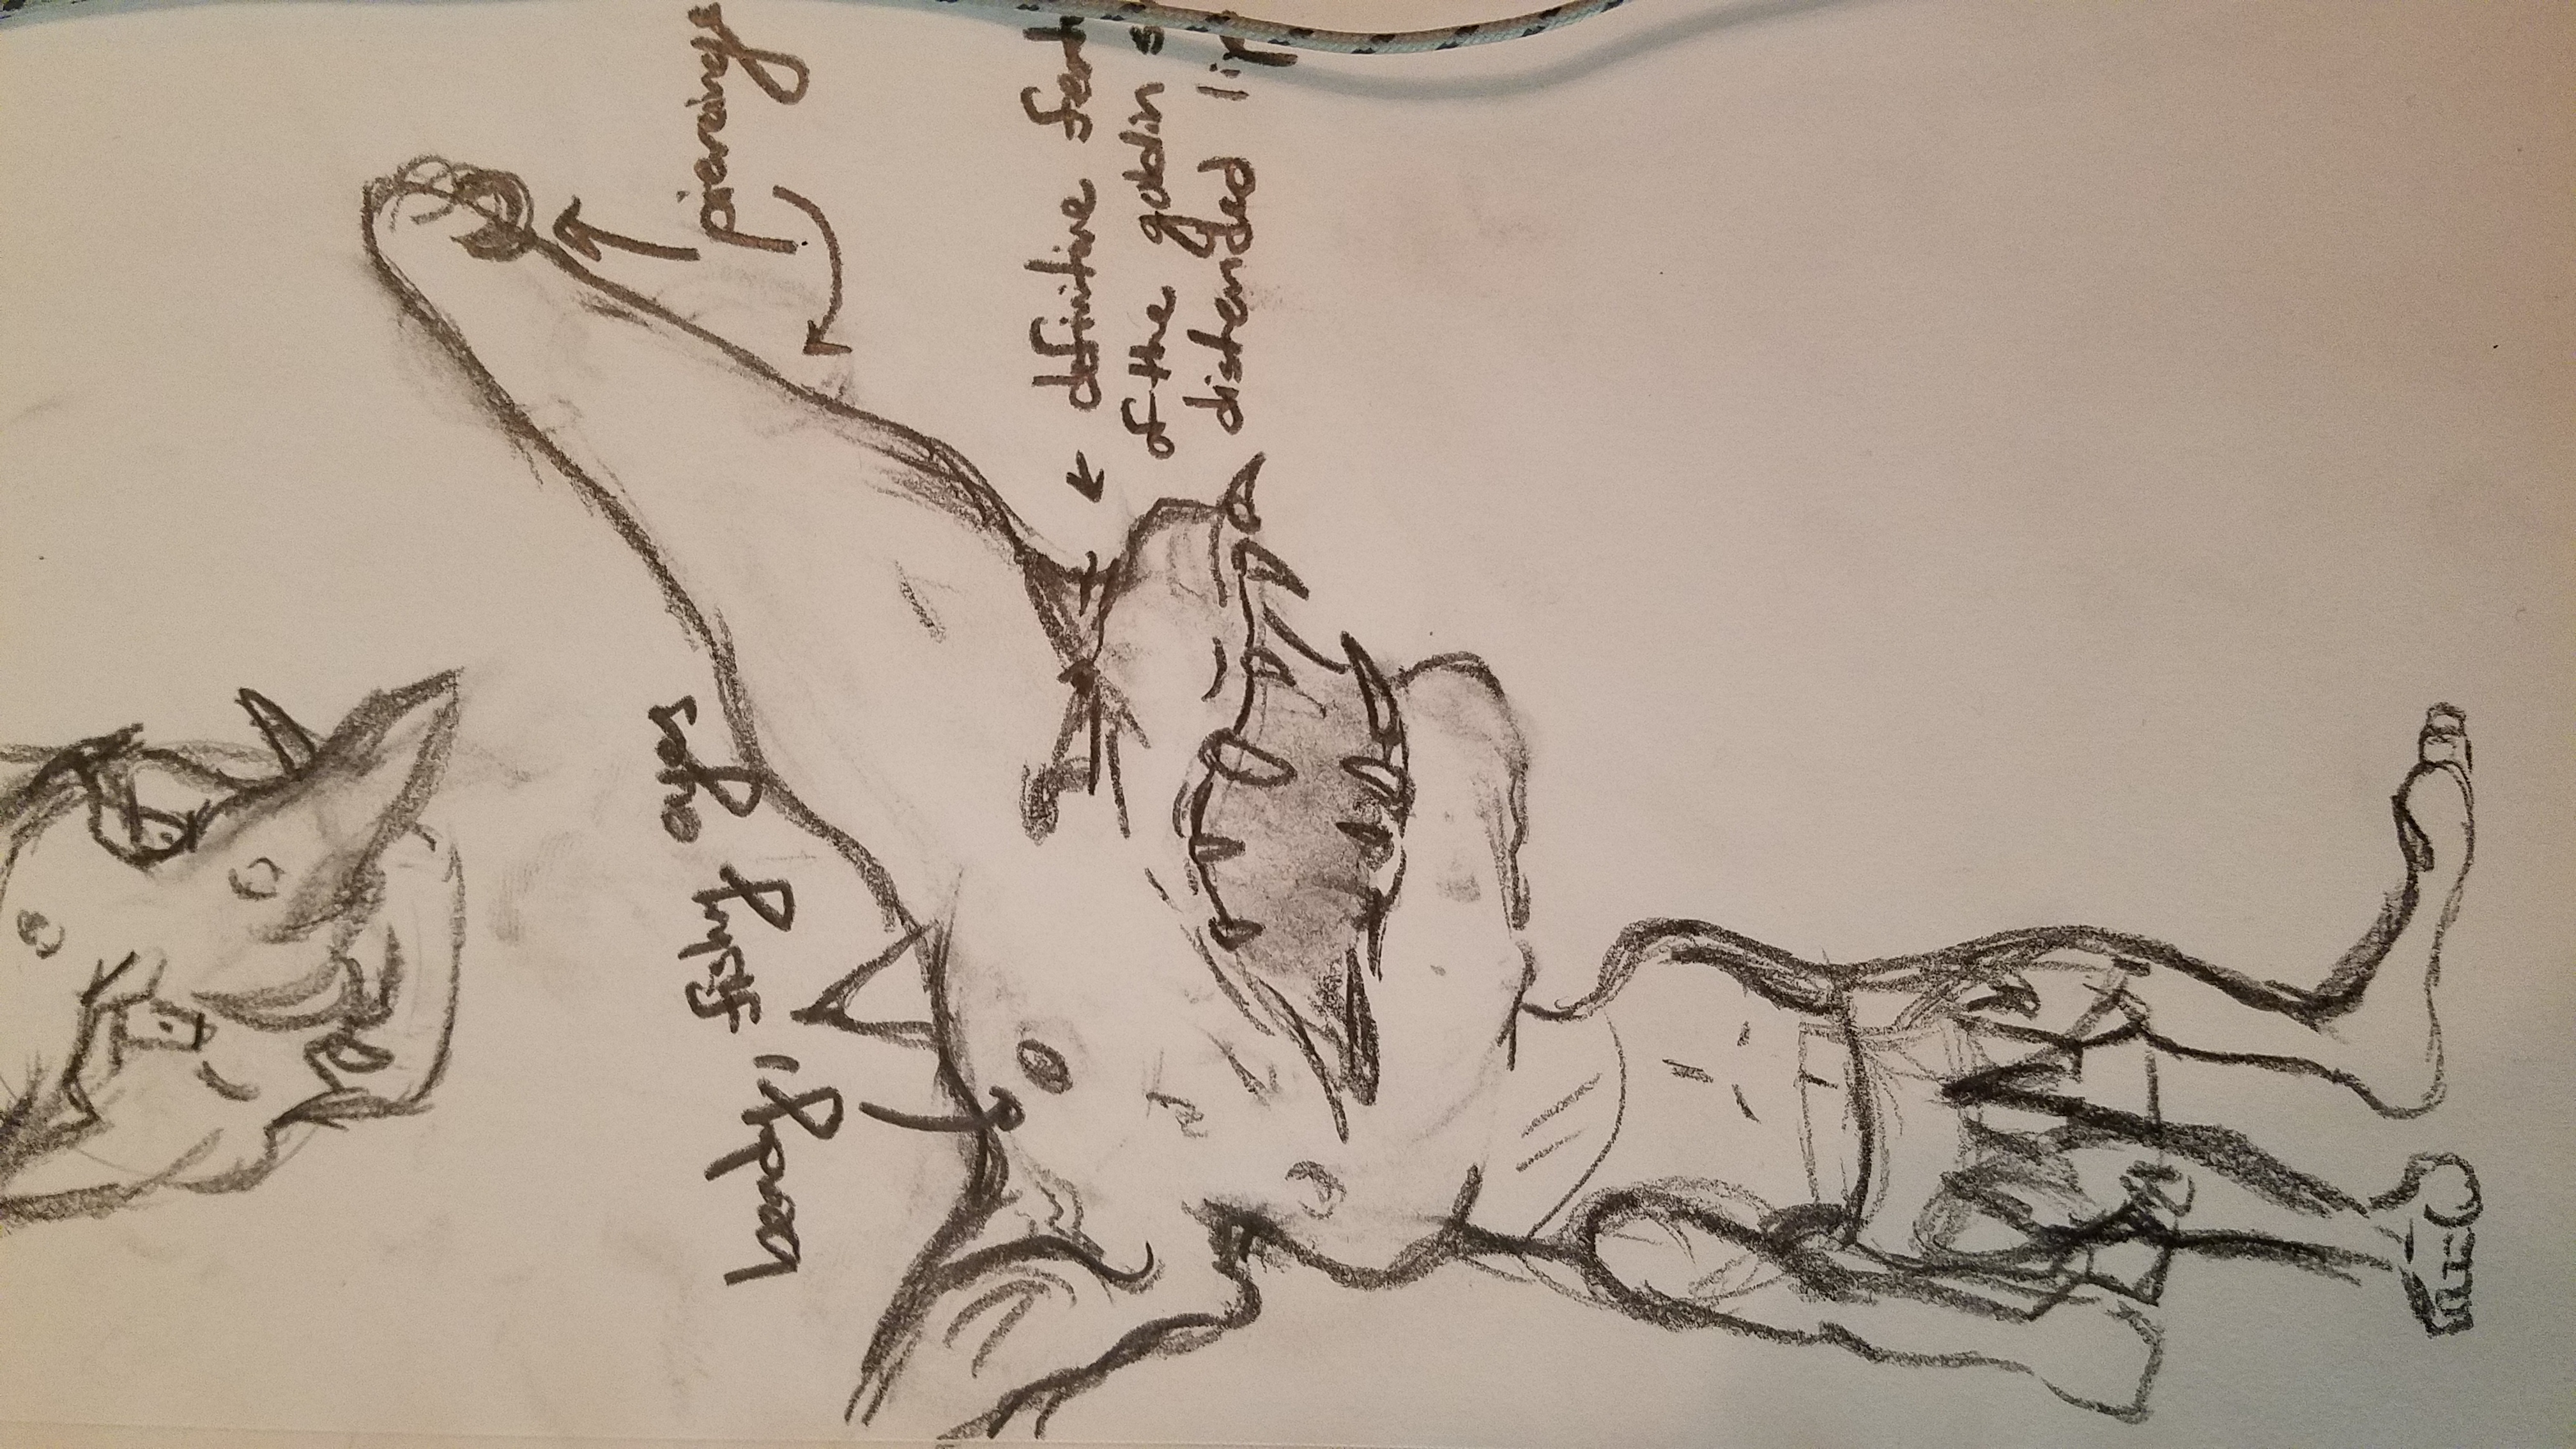 beady, fishy eyes
piercings
← definitive feat
of the goblin s
distended lip